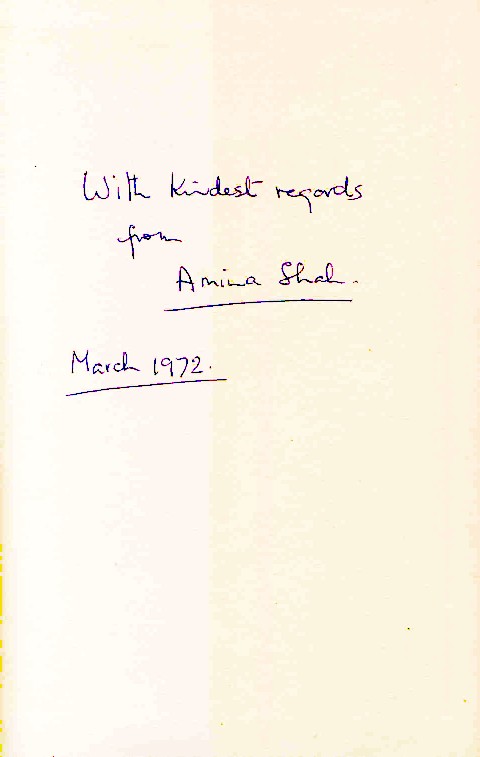 With Kindest regards
from
Amina Shah.
March 1972.